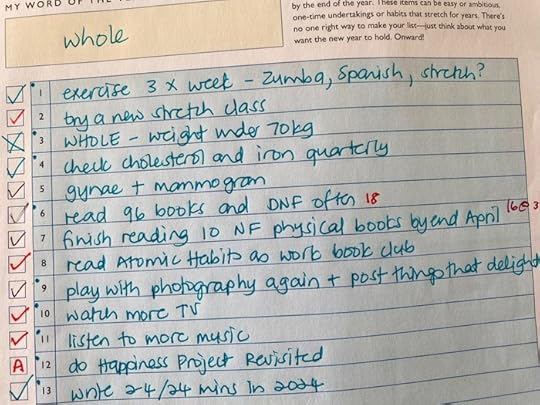 MY WORD OF THE
by the end of the year. These items can be easy or ambitious,
one-time undertakings or habits that stretch for years. There's
no one right way to make your list—just think about what
you want the new year to hold. Onward!
whole
1 exercise 3 x week - Zumba, Spanish, stretch?
2 try a new stretch class
3 WHOLE - weight under 70kg
4 check cholesterol and iron quarterly
5 gynae + mammogram
6 read 96 books and DNF often 18
7 finish reading 10 NF physical books by end April 16@3
8 read Atomic Habits as work book club
9 play with photography again + post things that delight
10 watch more TV
11 listen to more music
A 12 do Happiness Project Revisited
13 write 24/24 mins in 2024